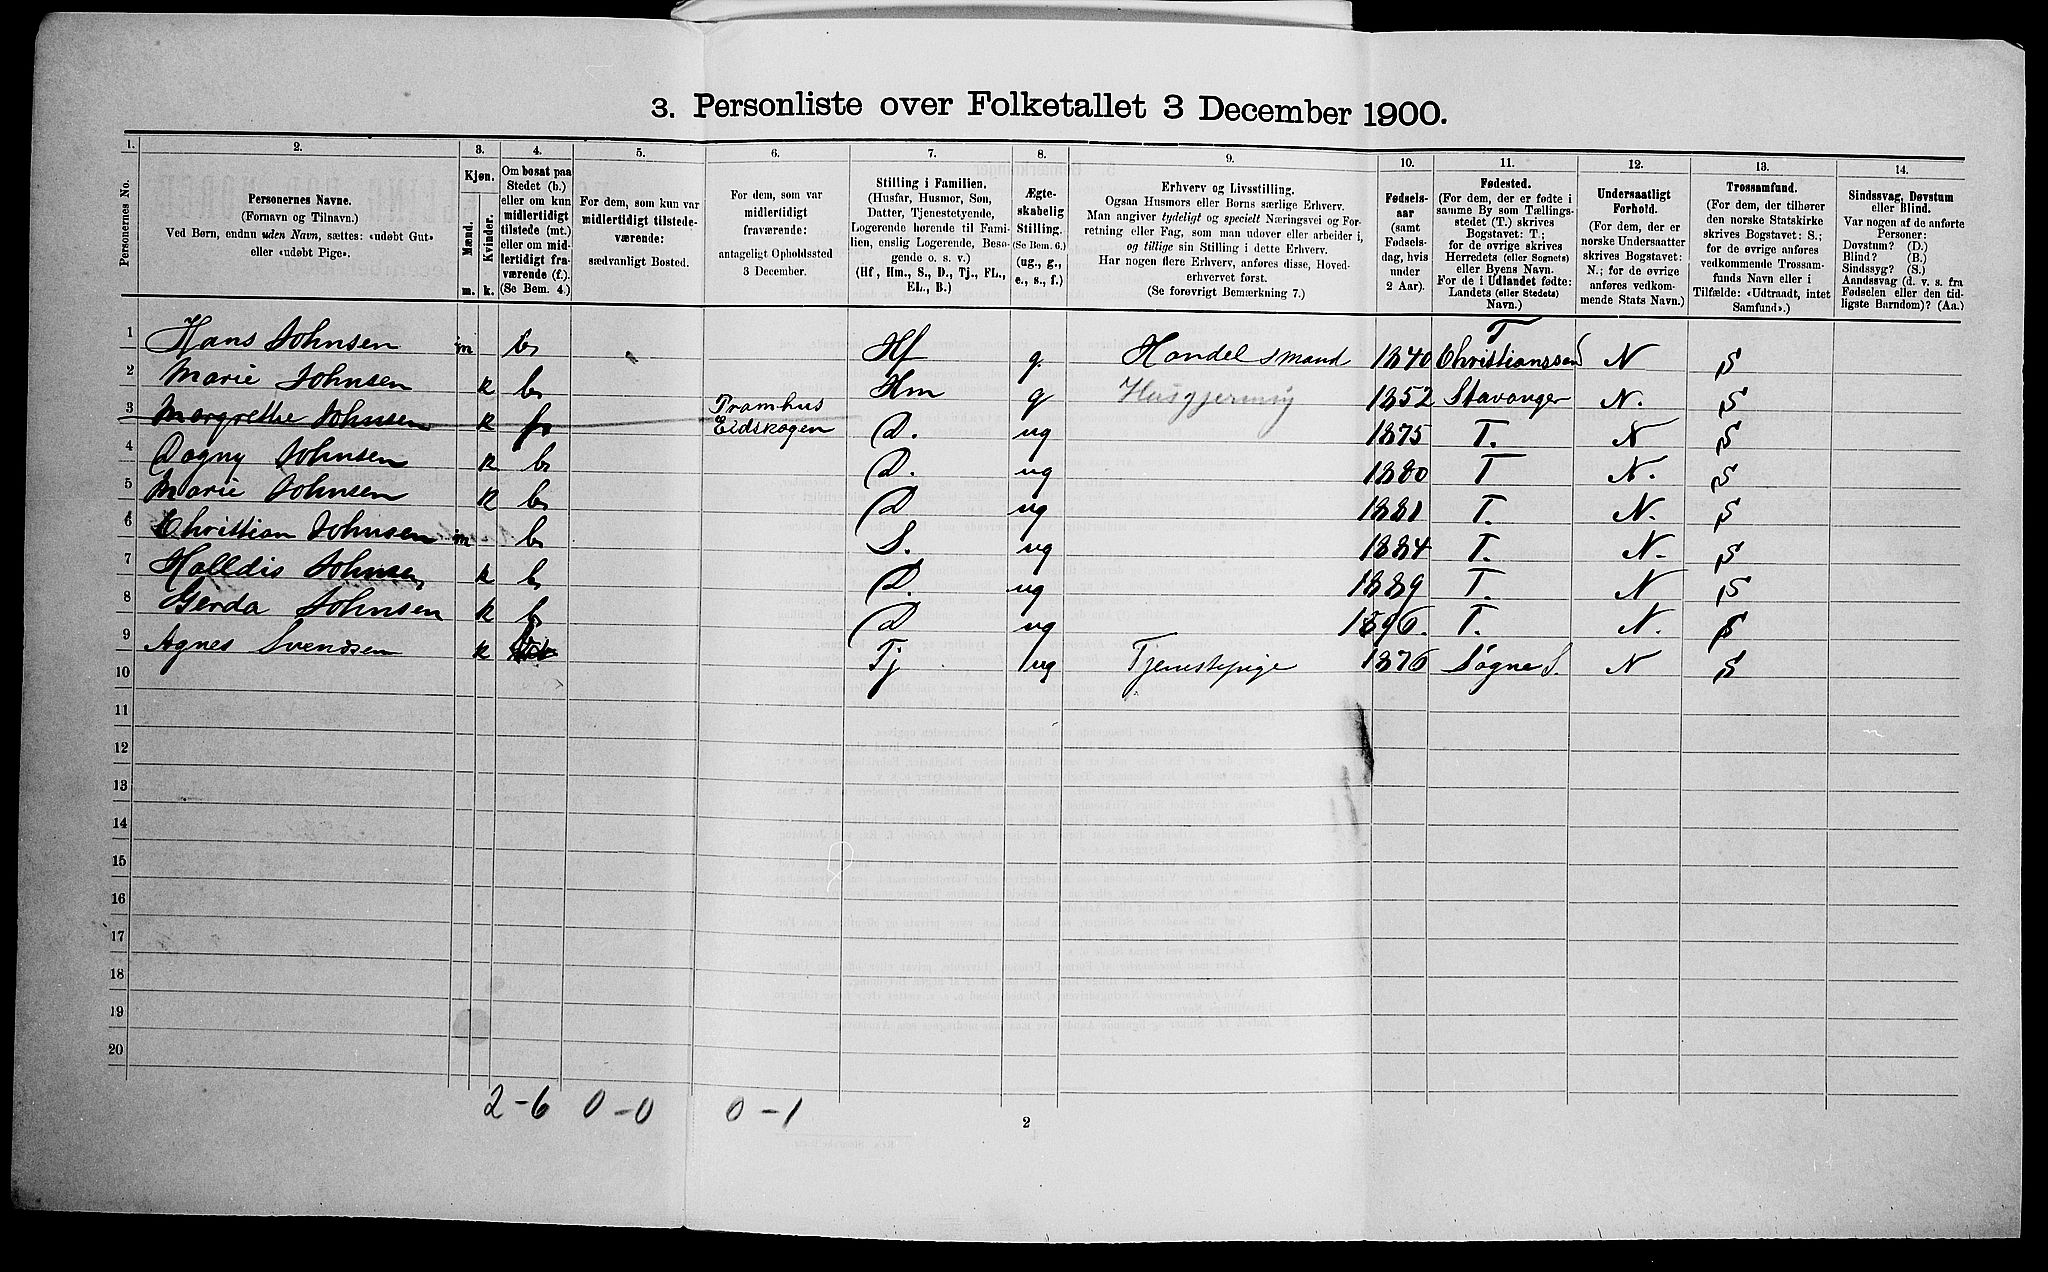 3. Personliste over Folketallet 3 December 1900.
1. 2. 3. 4. 5. 6. 7. 8. 9. 10. 11. 12. 13. 14.
Personernes No.
Personernes Navne.
(Fornavn og Tilnavn.)
Ved Børn, endnu uden Navn, sættes: «udøbt Gut»
eller «udøbt Pige».
Kjøn.
Mænd.
Kvinder.
m. k.
Om bosat paa
Stedet (b.)
eller om kun
midlertidigt
tilstede (mt.)
eller om mid-
lertidigt fra-
værende (f.).
(Se Bem. 4.)
For dem, som kun var
midlertidigt tilstede-
værende:
sædvanligt Bosted.
For dem, som var
midlertidigt
fraværende:
antageligt Opholdssted
3 December.
Stilling i Familien.
(Husfar, Husmor, Søn,
Datter, Tjenestetyende,
Logerende hørende til Fami-
lien, enslig Logerende, Besø-
gende o. s. v.)
(Hf, Hm., S., D., Tj., FL.,
EL., B.)
Ægte-
skabelig
Stilling.
(Se Bem. 6.)
(ug., g.,
e., s., f.)
Erhverv og Livsstilling.
Ogsaa Husmors eller Børns særlige Erhverv.
Man angiver tydeligt og specielt Næringsvei og For-
retning eller Fag, som man udover eller arbeider i,
og tillige sin Stilling i dette Erhverv.
Har nogen flere Erhverv, anføres disse, Hoved-
erhvervet først.
(Se forøvrigt Bemærkning 7.)
Fødsels-
aar
(samt
Fødsels-
dag, hvis
under
2 Aar).
Fødested.
(For dem, der er fødte i
samme By som Tællings-
stedet (T.) skrives
Bogstavet: T.;
for de øvrige skrives
Herredets (eller Sognets)
eller Byens Navn.
For de i Udlandet fødte:
Landets (eller Stedets)
Navn.)
Undersaatligt
Forhold.
(For dem, der er
norske Undersaatter
skrives Bogstavet:
N.; for de øvrige
anføres vedkom-
mende Stats Navn.)
Trossamfund.
(For dem, der tilhører
den norske Statskirke
skrives Bogstavet: S.;
for de øvrige anføres
vedkommende Trossam-
funds Navn eller i
Tilfælde: «Udtraadt, intet
Samfund».)
Sindssvag, Døvstum
eller Blind.
Var nogen af de anførte
Personer:
Døvstum? (D.)
Blind? (B.)
Sindssyg? (S.)
Aandssvag (d. v. s. fra
Fødselen eller den tid-
ligste Barndom)? (Aa.)
1 Hans Johnsen m b Hf g. Handelsmand 1840 T Christianssand N S
2 Marie Johnsen k b Hm g Husgjerning 1852 Stavanger N. S
3 Margrethe Johnsen k f Pramhus Eidskogen D. ug 1875 T. N S
4 Dagny Johnsen k b D. ug 1880 T N. S
5 Marie Johnsen k b D ug 1881 T. N. S
6 Christian Johnsen m b S. ug 1884 T. N. S
7 Halldis Johnsen k b D. ug 1889 T. N S
8 Gerda Johnsen k b D ug 1896. T. N. S
9 Agnes Svendsen k Tj ug Tjenestepige 1876 Søgne S. N S
10
11
12
13
14
15
16
17
18
19
20
2-6 0-0 0-1
2